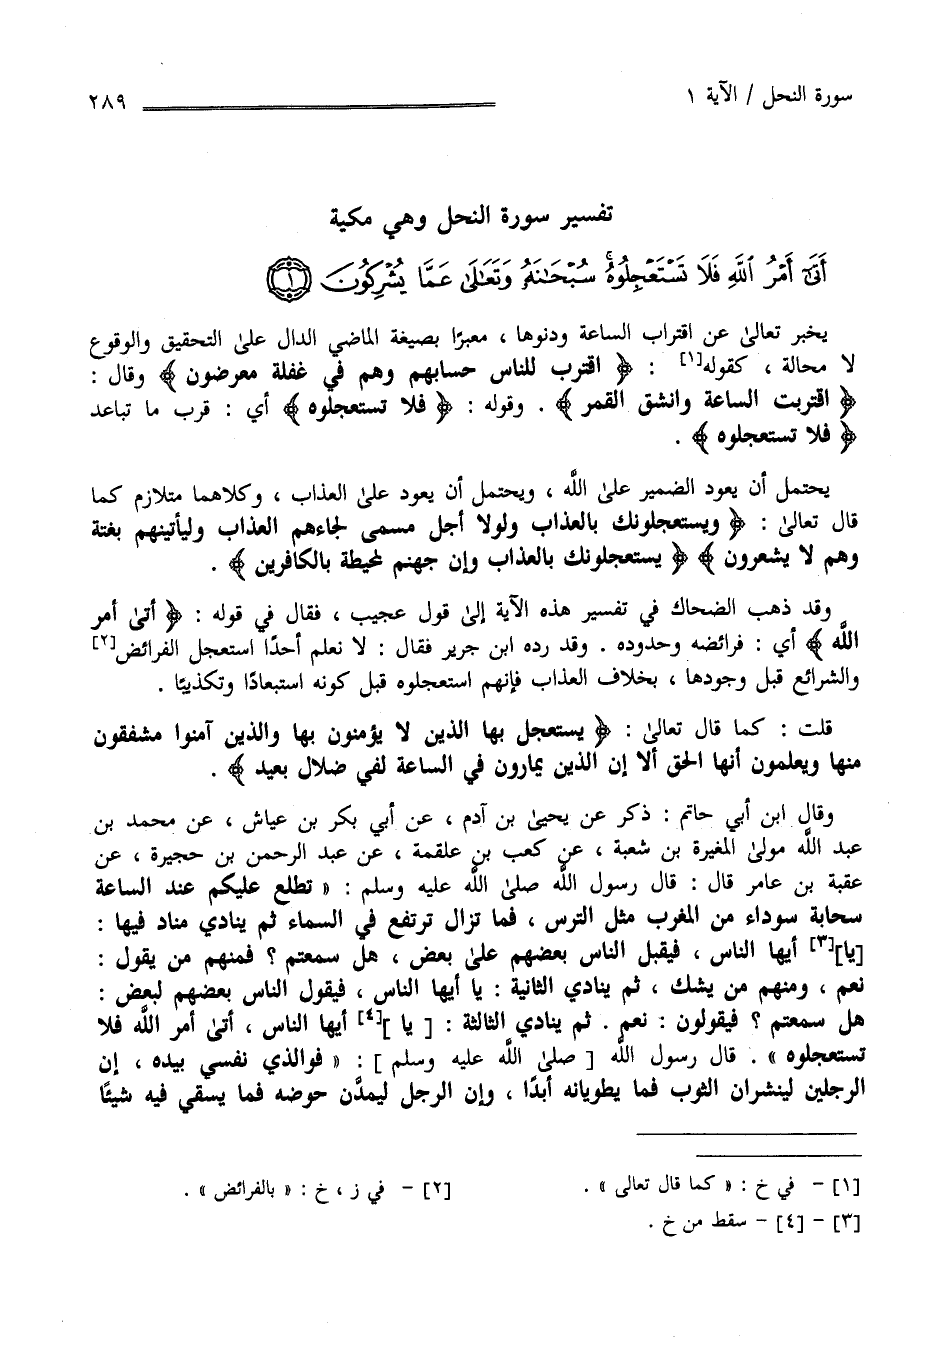 سورة النحل / الآية ١ ٢٨٩
تفسير سورة النحل وهي مكية
أَتَىٰٓ أَمْرُ ٱللَّهِ فَلَا تَسْتَعْجِلُوهُۚ سُبْحَـٰنَهُۥ وَتَعَـٰلَىٰ عَمَّا يُشْرِكُونَ ١
يخبر تعالىٰ عن اقتراب الساعة ودنوها ، معبرًا بصيغة الماضي الدال علىٰ التحقيق والوقوع
لا محالة ، كقوله[١] : ﴿ اقترب للناس حسابهم وهم في غفلة معرضون ﴾ وقال :
﴿ اقتربت الساعة وانشق القمر ﴾ . وقوله : ﴿ فلا تستعجلوه ﴾ أي : قرب ما تباعد
﴿ فلا تستعجلوه ﴾ .
يحتمل أن يعود الضمير علىٰ اللَّه ، ويحتمل أن يعود علىٰ العذاب ، وكلاهما متلازم كما
قال تعالىٰ : ﴿ ويستعجلونك بالعذاب ولولا أجل مسمى لجاءهم العذاب وليأتينهم بغتة
وهم لا يشعرون ﴾ ﴿ يستعجلونك بالعذاب وإن جهنم لمحيطة بالكافرين ﴾ .
وقد ذهب الضحاك في تفسير هذه الآية إلىٰ قول عجيب ، فقال في قوله : ﴿ أتىٰ أمر
اللَّه ﴾ أي : فرائضه وحدوده . وقد رده ابن جرير فقال : لا نعلم أحدًا استعجل الفرائض[٢]
والشرائع قبل وجودها ، بخلاف العذاب فإنهم استعجلوه قبل كونه استبعادًا وتكذيبًا .
قلت : كما قال تعالىٰ : ﴿ يستعجل بها الذين لا يؤمنون بها والذين آمنوا مشفقون
منها ويعلمون أنها الحق ألا إن الذين يمارون في الساعة لفي ضلال بعيد ﴾ .
وقال ابن أبي حاتم : ذكر عن يحيىٰ بن آدم ، عن أبي بكر بن عياش ، عن محمد بن
عبد اللَّه مولىٰ المغيرة بن شعبة ، عن كعب بن علقمة ، عن عبد الرحمن بن حجيرة ، عن
عقبة بن عامر قال : قال رسول اللَّه صلىٰ اللَّه عليه وسلم : « تطلع عليكم عند الساعة
سحابة سوداء من المغرب مثل الترس ، فما تزال ترتفع في السماء ثم ينادي مناد فيها :
[يا][٣] أيها الناس ، فيقبل الناس بعضهم علىٰ بعض ، هل سمعتم ؟ فمنهم من يقول :
نعم ، ومنهم من يشك ، ثم ينادي الثانية : يا أيها الناس ، فيقول الناس بعضهم لبعض :
هل سمعتم ؟ فيقولون : نعم . ثم ينادي الثالثة : [ يا ][٤] أيها الناس ، أتىٰ أمر اللَّه فلا
تستعجلوه » . قال رسول اللَّه [ صلىٰ اللَّه عليه وسلم ] : « فوالذي نفسي بيده ، إن
الرجلين لينشران الثوب فما يطويانه أبدًا ، وإن الرجل ليمدَّن حوضه فما يسقي فيه شيئًا
[١] - في خ : « كما قال تعالى » . [٢] - في ز ، خ : « بالفرائض » .
[٣] - [٤] - سقط من خ .